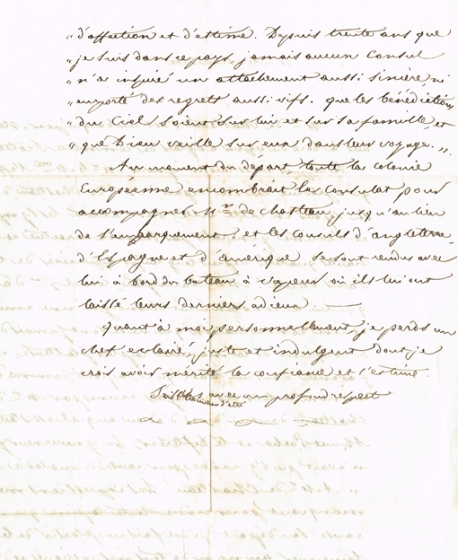 " d'affection et d'estime. Depuis trente ans que
" je suis dans ce pays, jamais aucun Consul
" n'a inspiré un attachement aussi sincère ni
" emporté des regrets aussi vifs. que les bénédictions
" du Ciel soient sur lui et sur sa famille, et
" que Dieu veille sur eux dans leur voyage. ".
Au moment du départ, toute la colonie
Européenne encombrait le consulat pour
accompagner Mr. de Chasteau jusqu'au lieu
de l'embarquement. et les consuls d'angleterre,
d'Espagne et d'amérique se sont rendus avec
lui à bord du bateau à vapeur où ils lui ont
laissé leurs derniers adieux. —
quant à moi personnellement, je perds un
chef eclairé, juste et indulgent dont je
crois avoir mérité la confiance et l'estime.
avec un profond respect